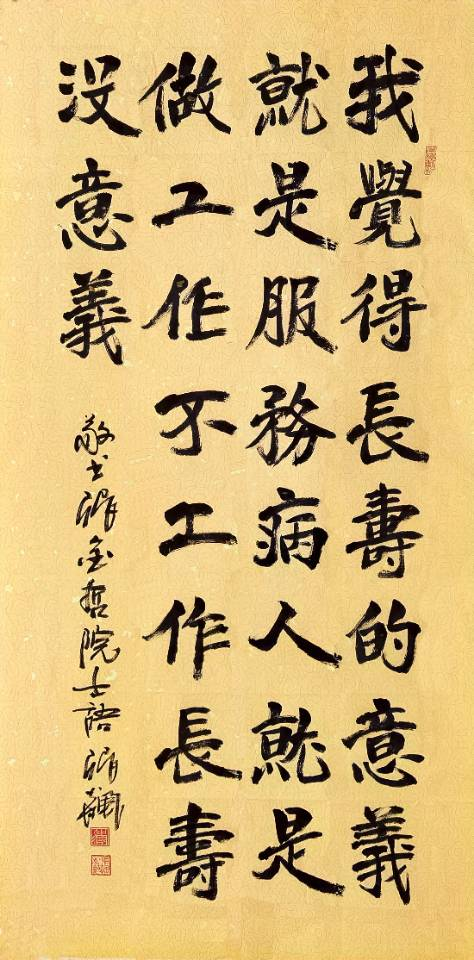 我覺得長壽的意義
就是服務病人就是
做工作不工作長壽
没意義
敬书张金哲院士語